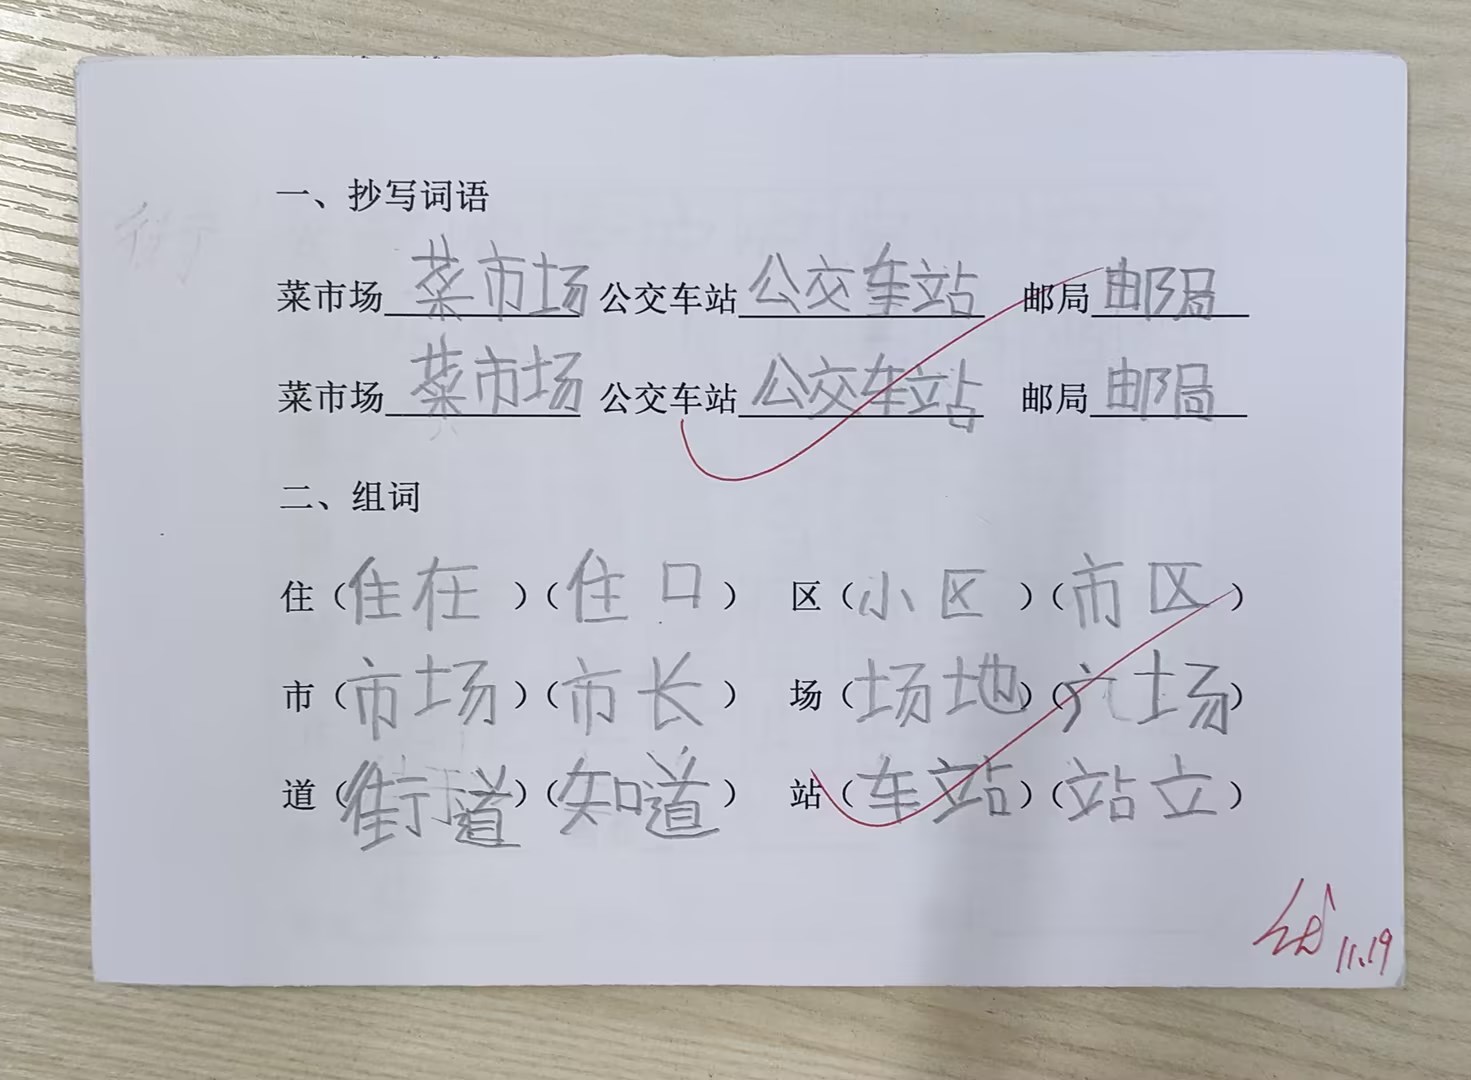 一、抄写词语
菜市场 菜市场 公交车站 公交车站 邮局 邮局
菜市场 菜市场 公交车站 公交车站 邮局 邮局
二、组词
住（住在）（住口） 区（小区）（市区）
市（市场）（市长） 场（场地）（广场）
道（街道）（知道） 站（车站）（站立）
11.19